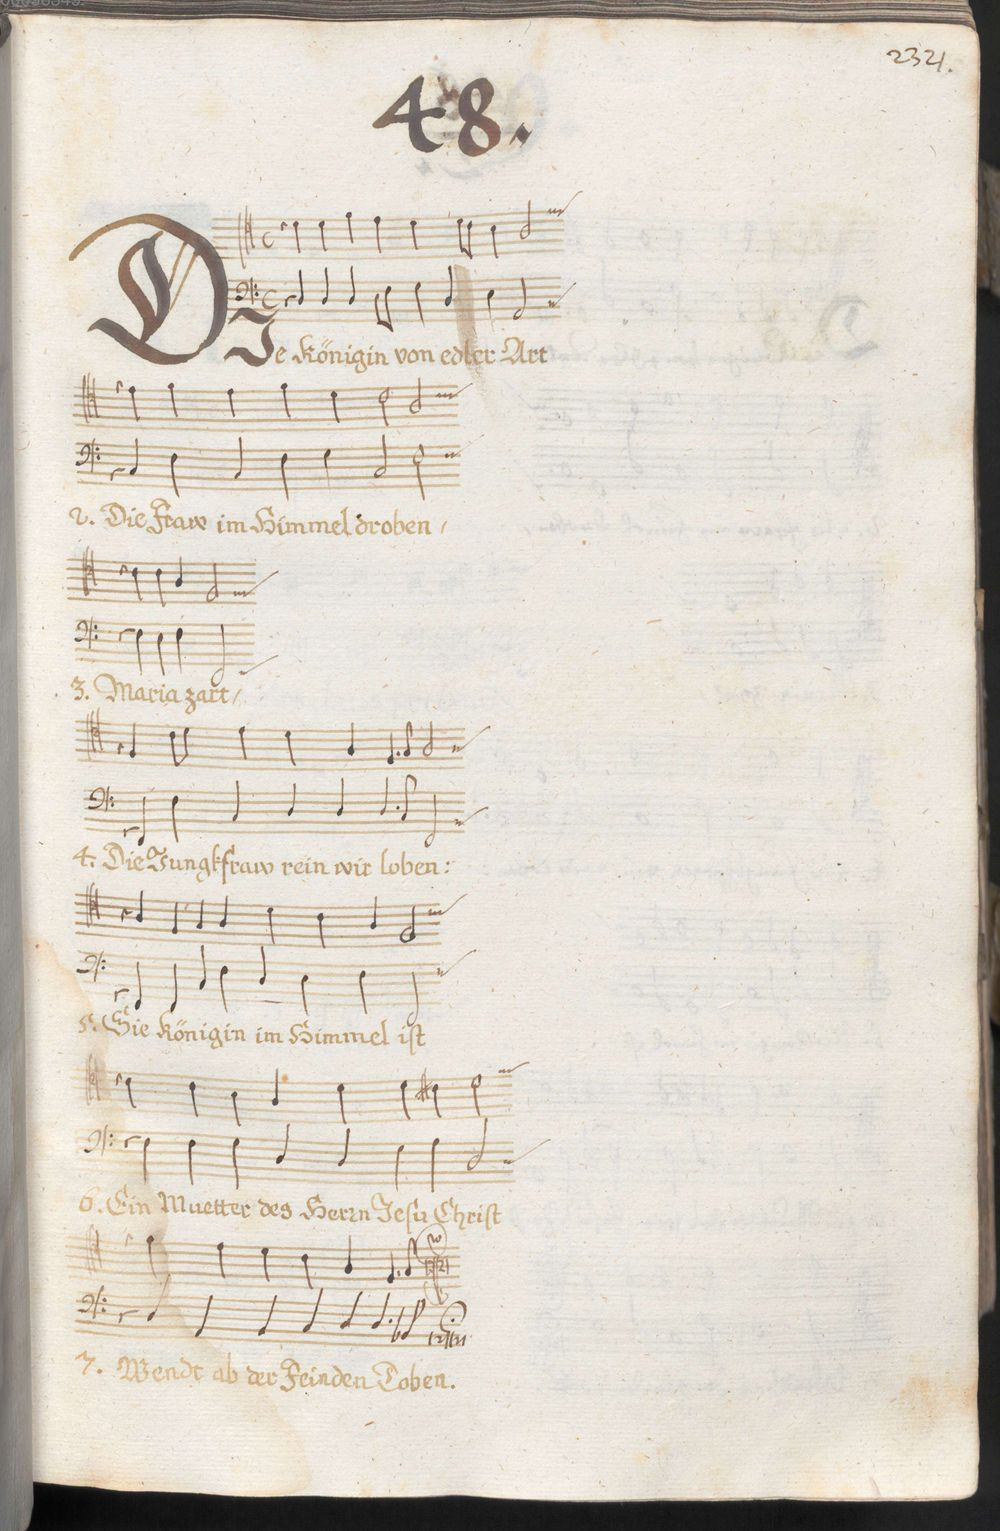 2321.
48.
DIe Königin von edler Art
2. Die Fraw im Himmel droben,
3. Maria zart,
4. Die Jungkfraw rein wir loben:
5. Die Königin im Himmel ist
6. Ein Muetter des Herrn Jesu Christ
7. Wendt ab der Feinden Toben.